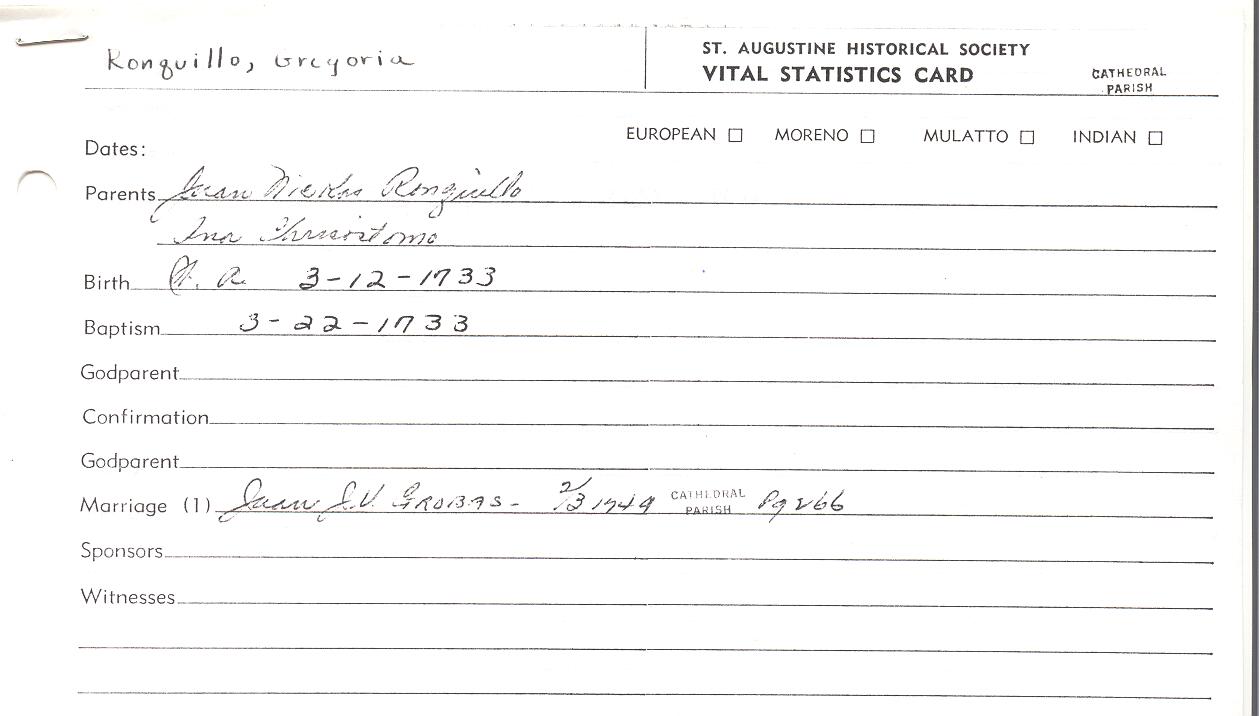 Ronquillo, Gregoria
ST. AUGUSTINE HISTORICAL SOCIETY
VITAL STATISTICS CARD
CATHEDRAL
PARISH
EUROPEAN MORENO MULATTO INDIAN
Dates:
Parents Juan Nicolas Ronquillo
Chrisostomo
Birth A. 3-12-1733
Baptism 3-22-1733
Godparent
Confirmation
Godparent
Marriage (1) Juan J.V. GROBAS - 2/3 1749 CATHEDRAL PARISH Pg 266
Sponsors
Witnesses